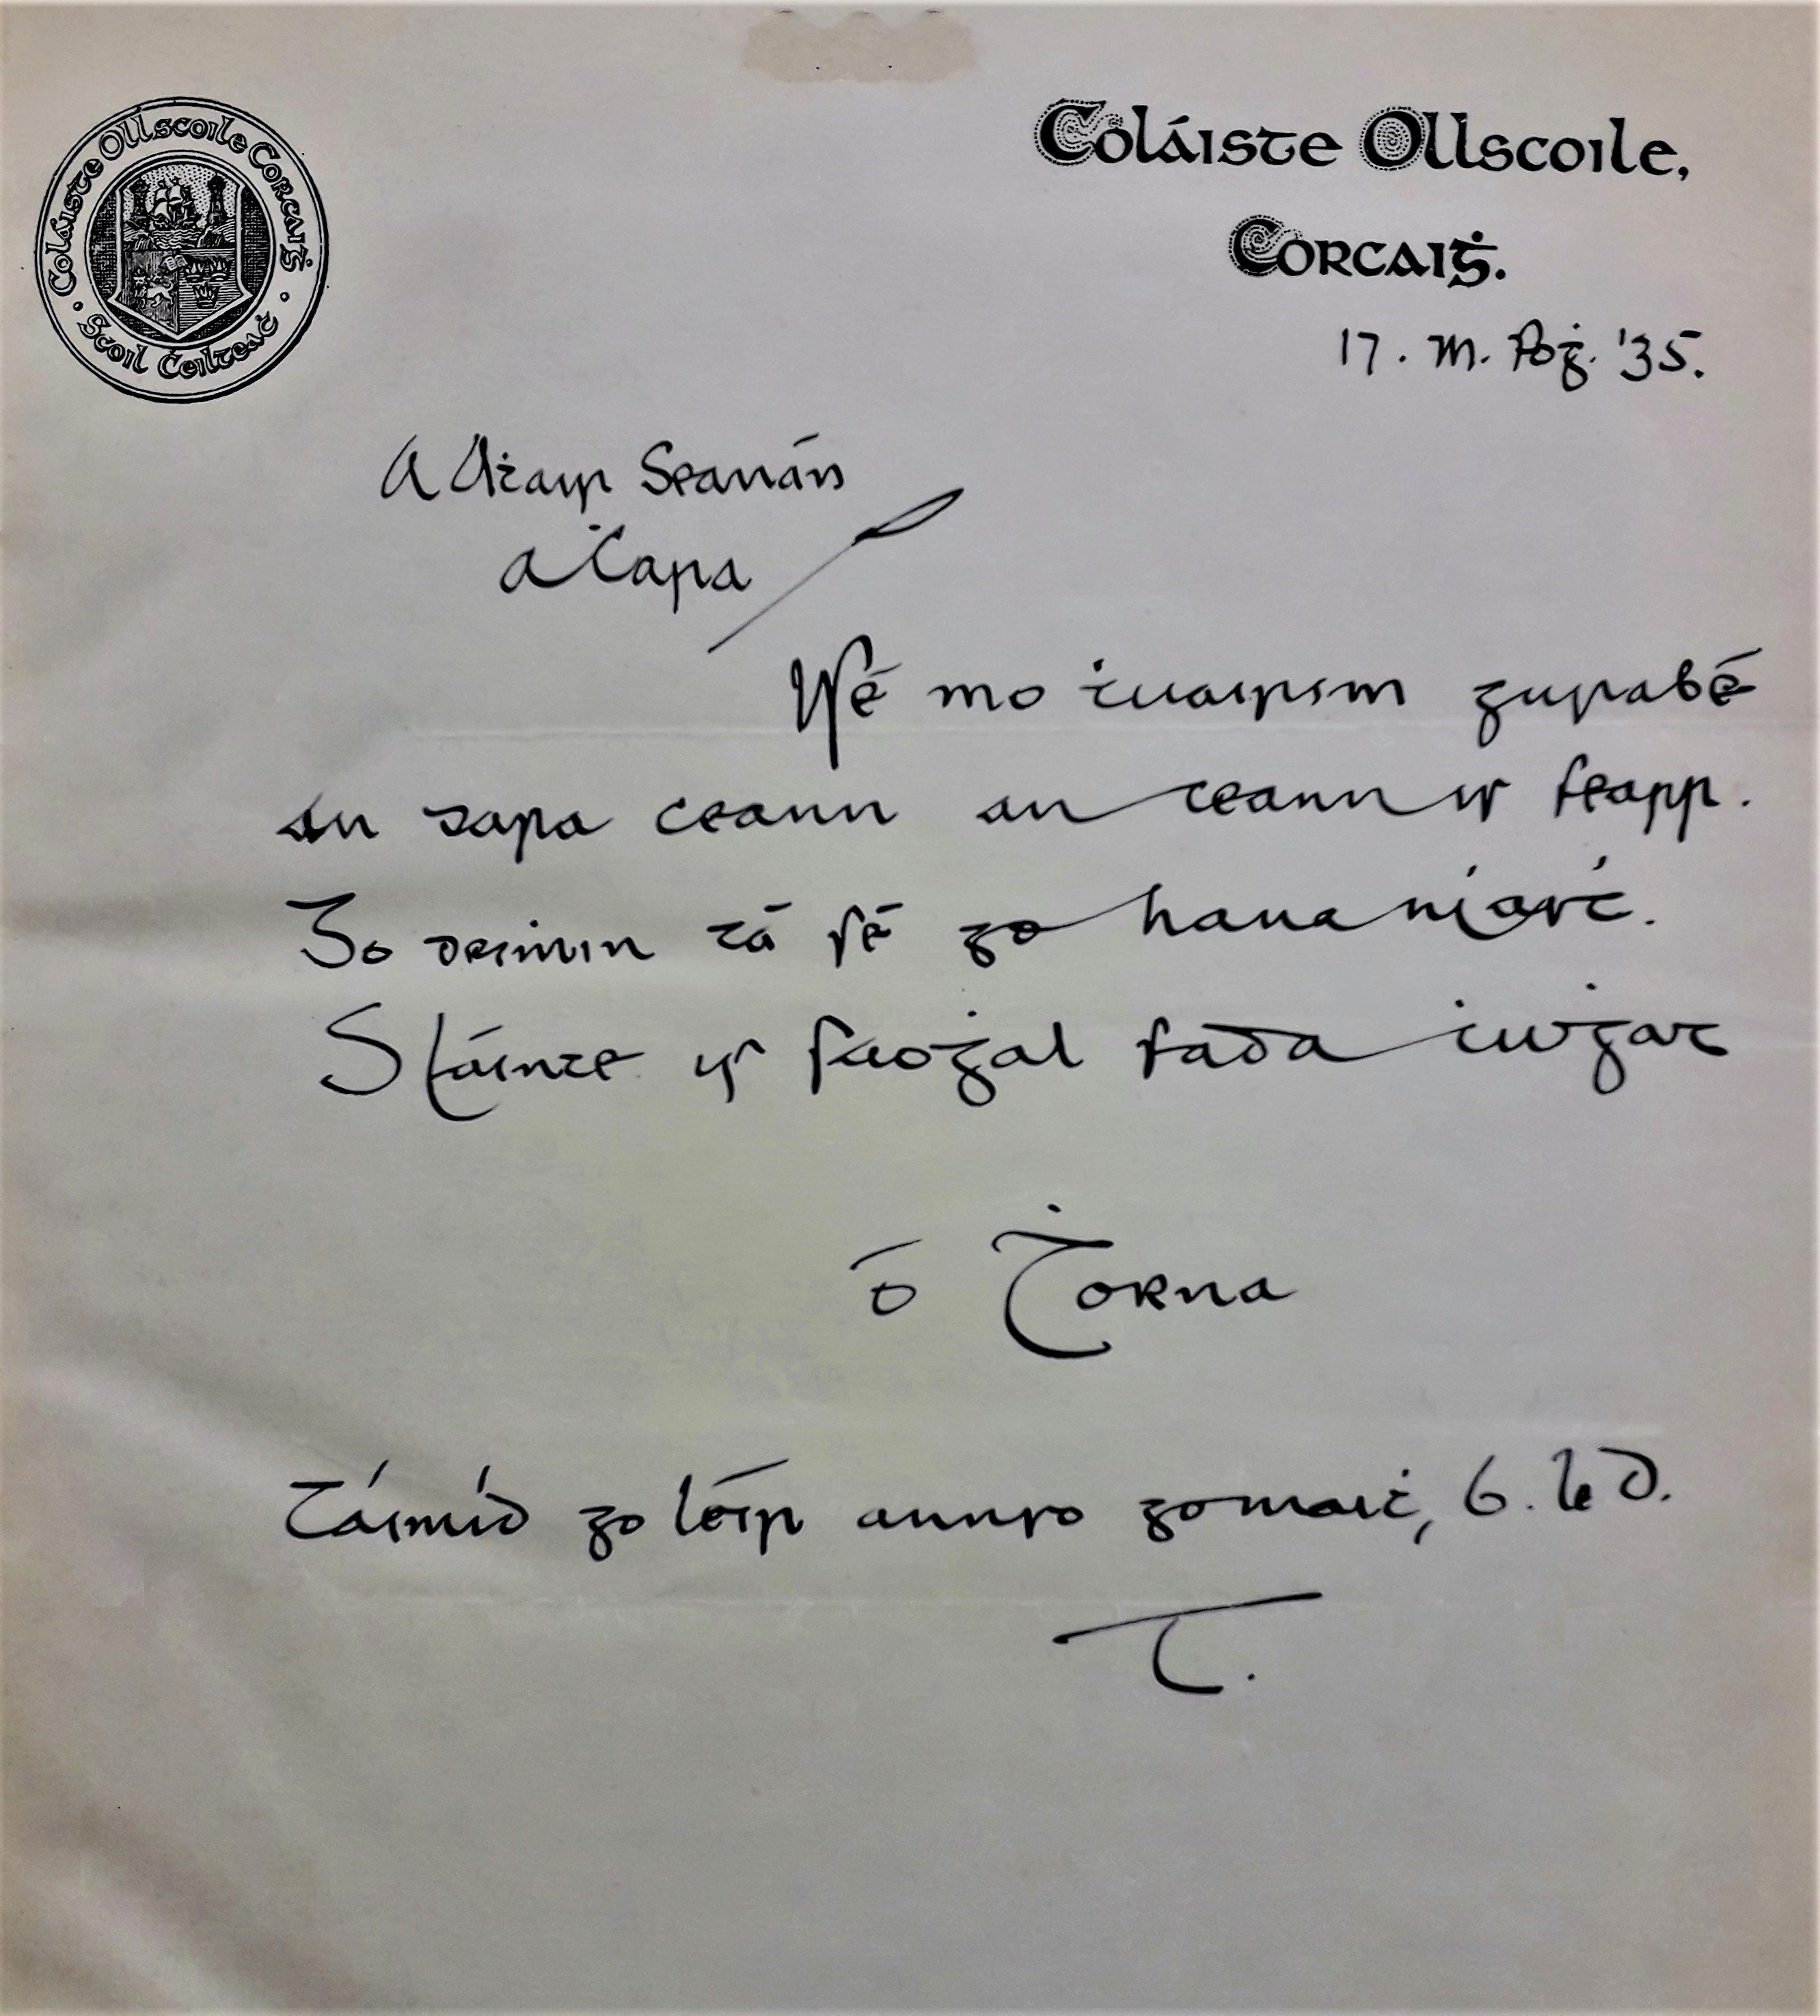 Coláiste Ollscoile Corcaiġ
Scoil Ċeilteaċ
Coláiste Ollscoile,
Corcaiġ.
17. M. Foġ. '35.
A Aṫair Seanán
a ċara
'Sé mo ṫuairim gurabé
an dara ceann an ceann is fearr.
Go deiṁin tá sé go hana ṁaiṫ.
Sláinte is saoġal fada ċuġat
ó Ṫorna
Táimíd go léir annso go maiṫ, b. le D.
T.